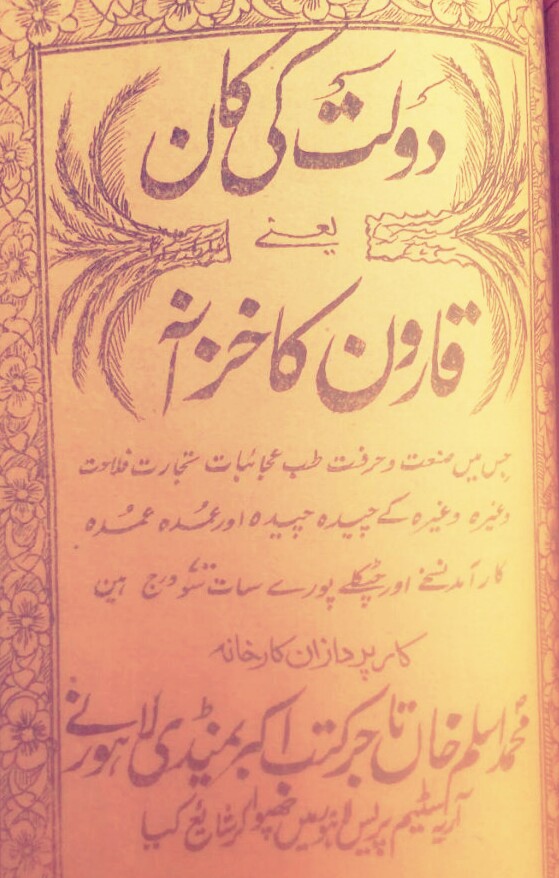 دولت کی کان
یعنے
قارون کا خزانہ
جس میں صنعت و حرفت طب عجائبات تجارت فلاحت
وغیرہ وغیرہ کے چیدہ چیدہ اور عمدہ عمدہ
کارآمد نسخے اور چٹکلے پورے سات سو درج ہین
کارپردازان کارخانہ
محمد اسلم خاں تاجر کتب اکبر منڈی لاہور نے
آریہ سٹیم پریس لاہور میں چھپوا کر شایع کیا